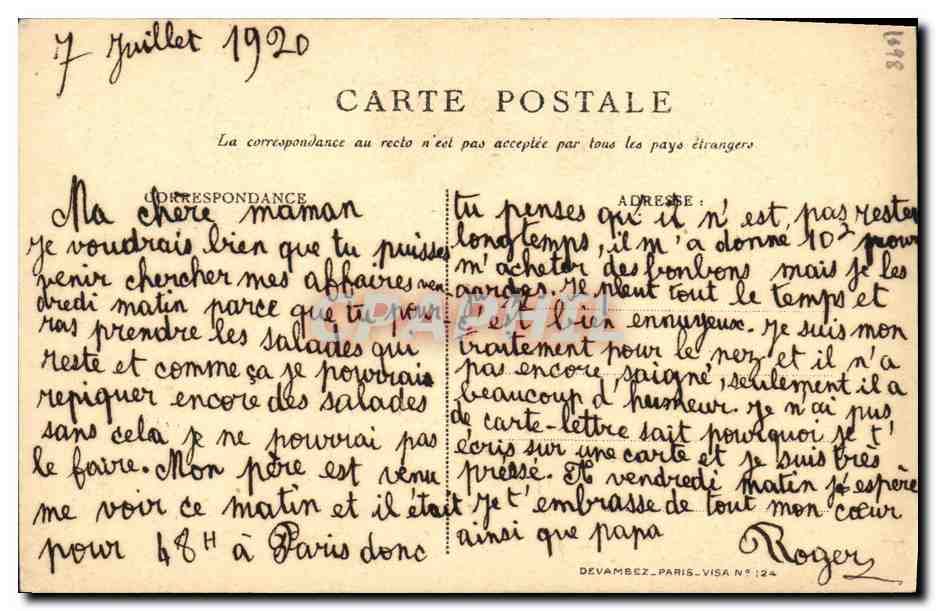 7 Juillet 1920
CARTE POSTALE
La correspondance au recto n'est pas acceptée par tous les pays étrangers
CORRESPONDANCE
Ma chère maman
Je voudrais bien que tu puisses
venir chercher mes affaires ven
dredi matin parce que tu pour
ras prendre les salades qui
reste et comme ça je pourrais
repiquer encore des salades
sans cela je ne pourrai pas
le faire. Mon père est venu
me voir ce matin et il était
pour 48H à Paris donc
ADRESSE :
tu penses qu'il n'est pas rester
longtemps, il m'a donné 10 pour
m'acheter des bonbons mais je les
gardes. Je pleut tout le temps et
c'est bien ennuyeux. Je suis mon
traitement pour le nez et il n'a
pas encore saigné, seulement il a
beaucoup d'humeur. Je n'ai pus
de carte-lettre sait pourquoi je t'
écris sur une carte et je suis très
pressé. A vendredi matin j'espère
Je t'embrasse de tout mon cœur
ainsi que papa
Roger
DEVAMBEZ-PARIS-VISA Nº 124
CPAPHIL